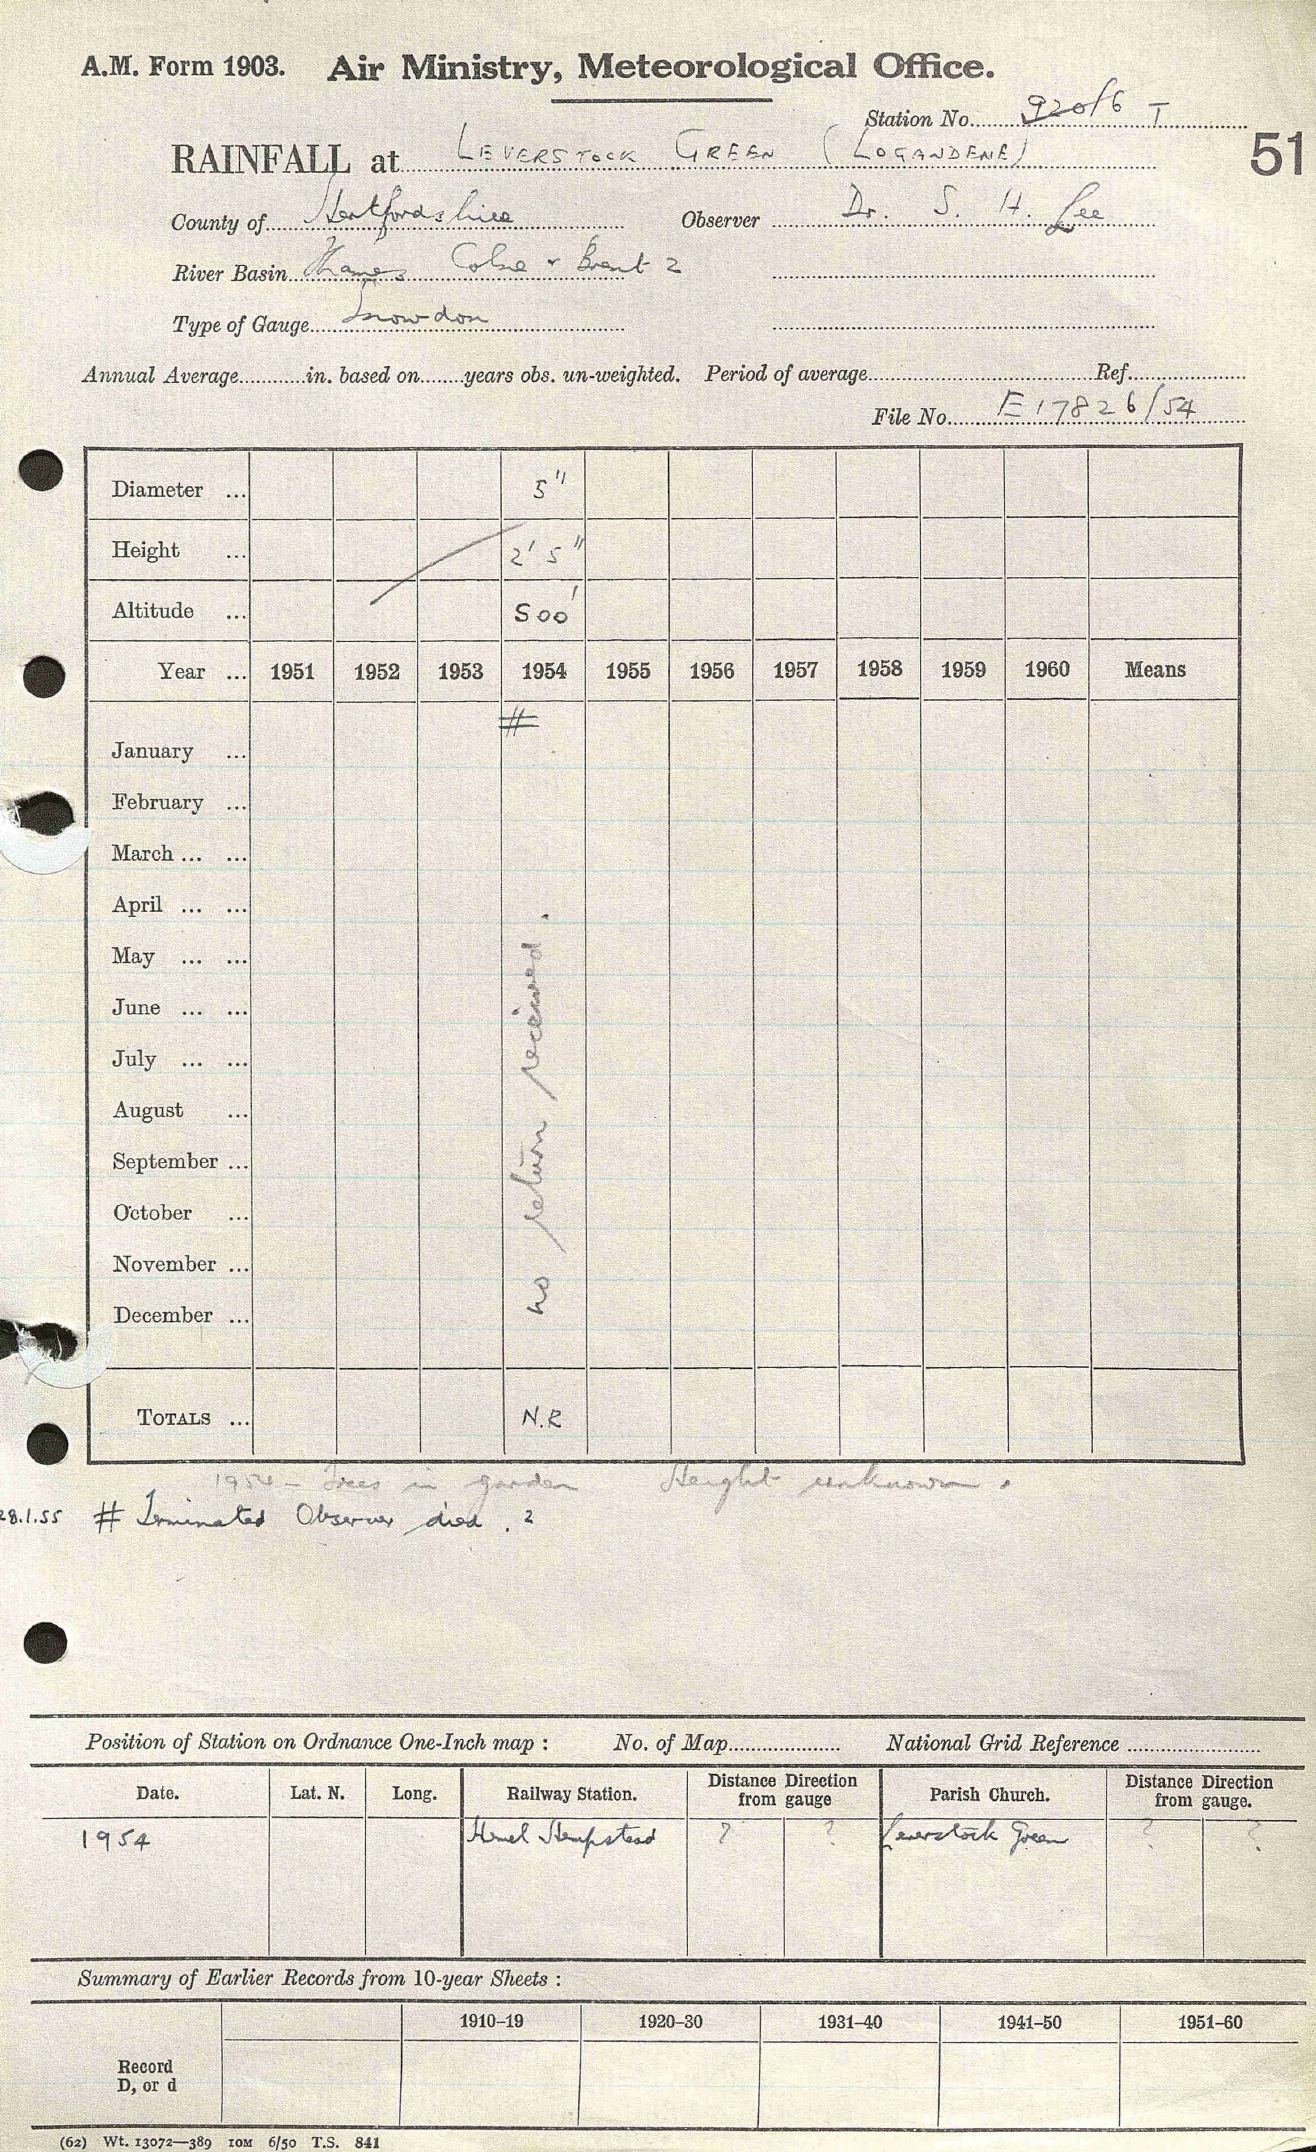 A.M. Form 1903. Air Ministry, Meteorological Office.
Station No. 920/6 T
RAINFALL at LEVERSTOCK GREEN (LOGANDENE) 51
County of Hertfordshire Observer Dr. S. H. Lee
River Basin Thames Colne + Brent 2
Type of Gauge Snowdon
Annual Average............in. based on........years obs. un-weighted. Period of average............Ref............
File No. E17826/54
Diameter ... 5"
Height ... 2' 5"
Altitude ... 500'
Year ... 1951 1952 1953 1954 1955 1956 1957 1958 1959 1960 Means
#
January ...
February ...
March ... ...
April ... ...
May ... ...
June ... ...
July ... ...
August ...
September ...
October ...
November ...
December ...
no return received.
TOTALS ... N.R
1954 - Trees in garden Height unknown.
28.1.55 # Terminated Observer died. 2
Position of Station on Ordnance One-Inch map : No. of Map............ National Grid Reference ............
Date. Lat. N. Long. Railway Station. Distance Direction from gauge Parish Church. Distance Direction from gauge.
1954 Hemel Hempstead ? ? Leverstock Green ? ?
Summary of Earlier Records from 10-year Sheets :
1910–19 1920–30 1931–40 1941–50 1951–60
Record
D, or d
(62) Wt. 13072—389 10M 6/50 T.S. 841